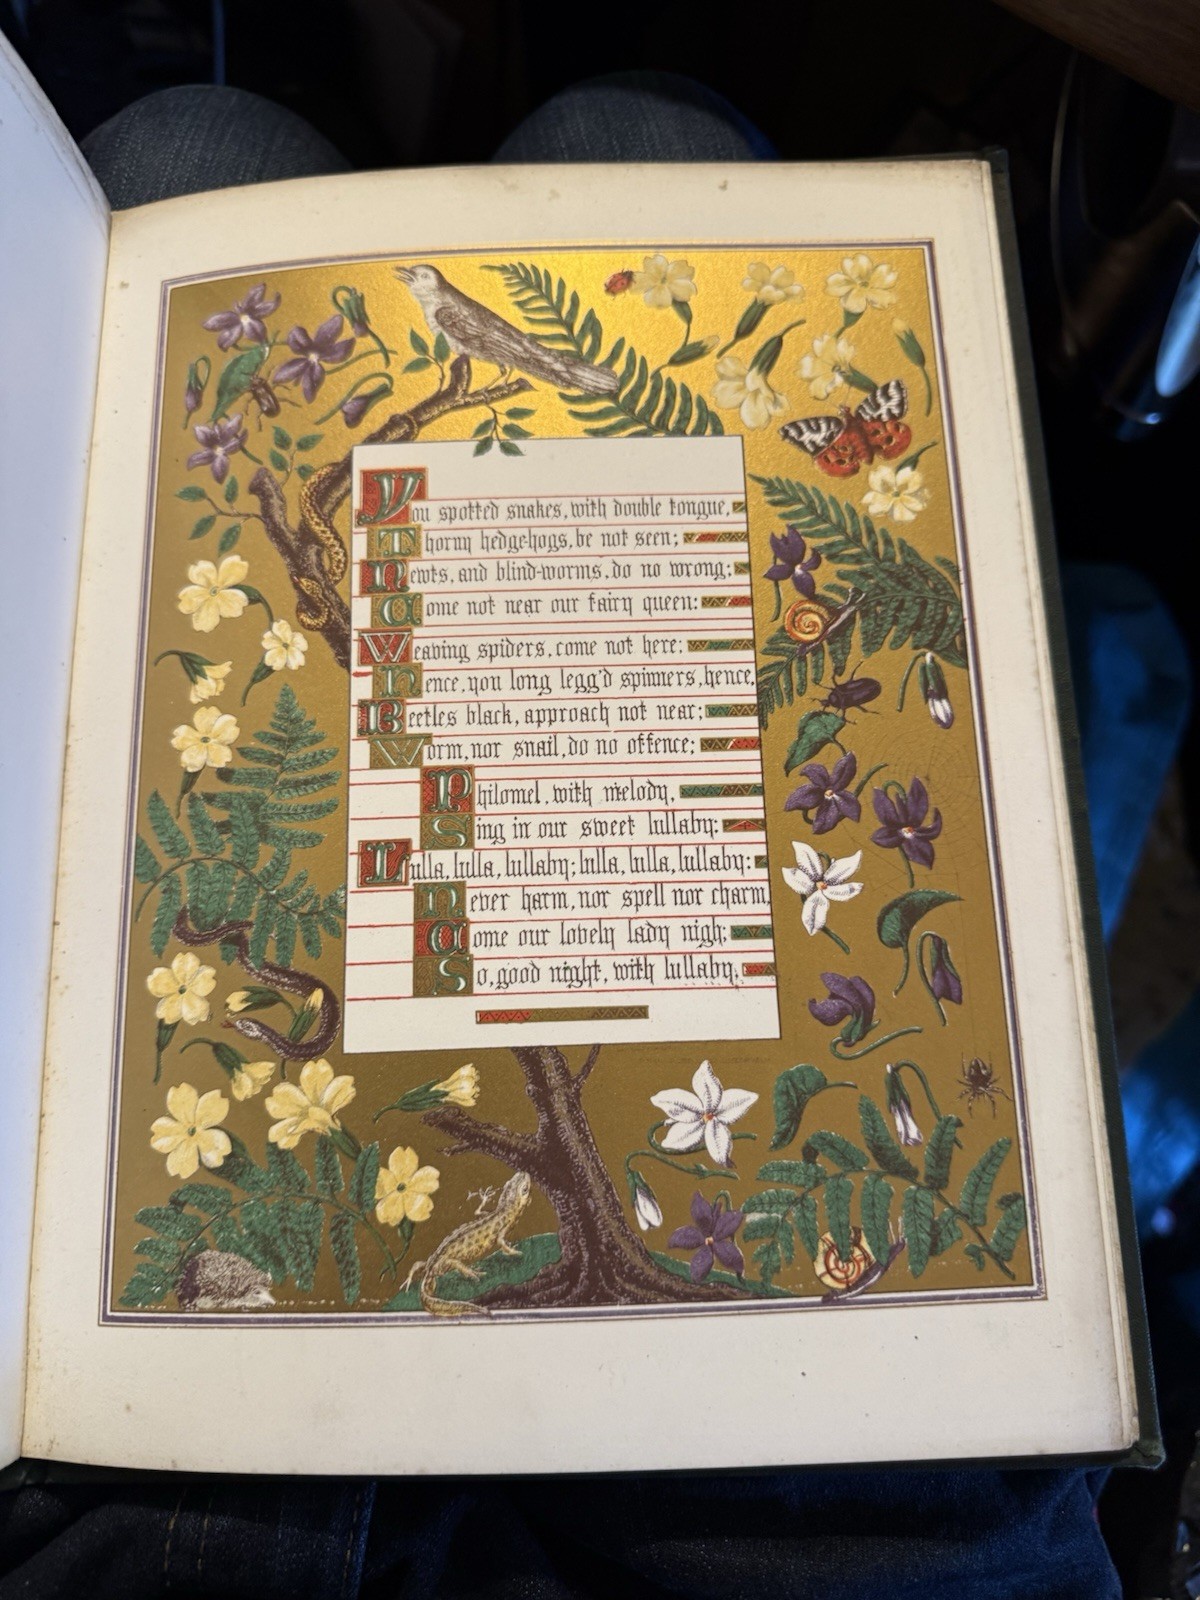 You spotted snakes, with double tongue,
Thorny hedge-hogs, be not seen;
Newts, and blind-worms, do no wrong;
Come not near our fairy queen:
Weaving spiders, come not here;
Hence, you long legg'd spinners, hence,
Beetles black, approach not near;
Worm, nor snail, do no offence;
Philomel, with melody,
Sing in our sweet lullaby:
Lulla, lulla, lullaby; lulla, lulla, lullaby:
Never harm, nor spell nor charm,
Come our lovely lady nigh;
So, good night, with lullaby.